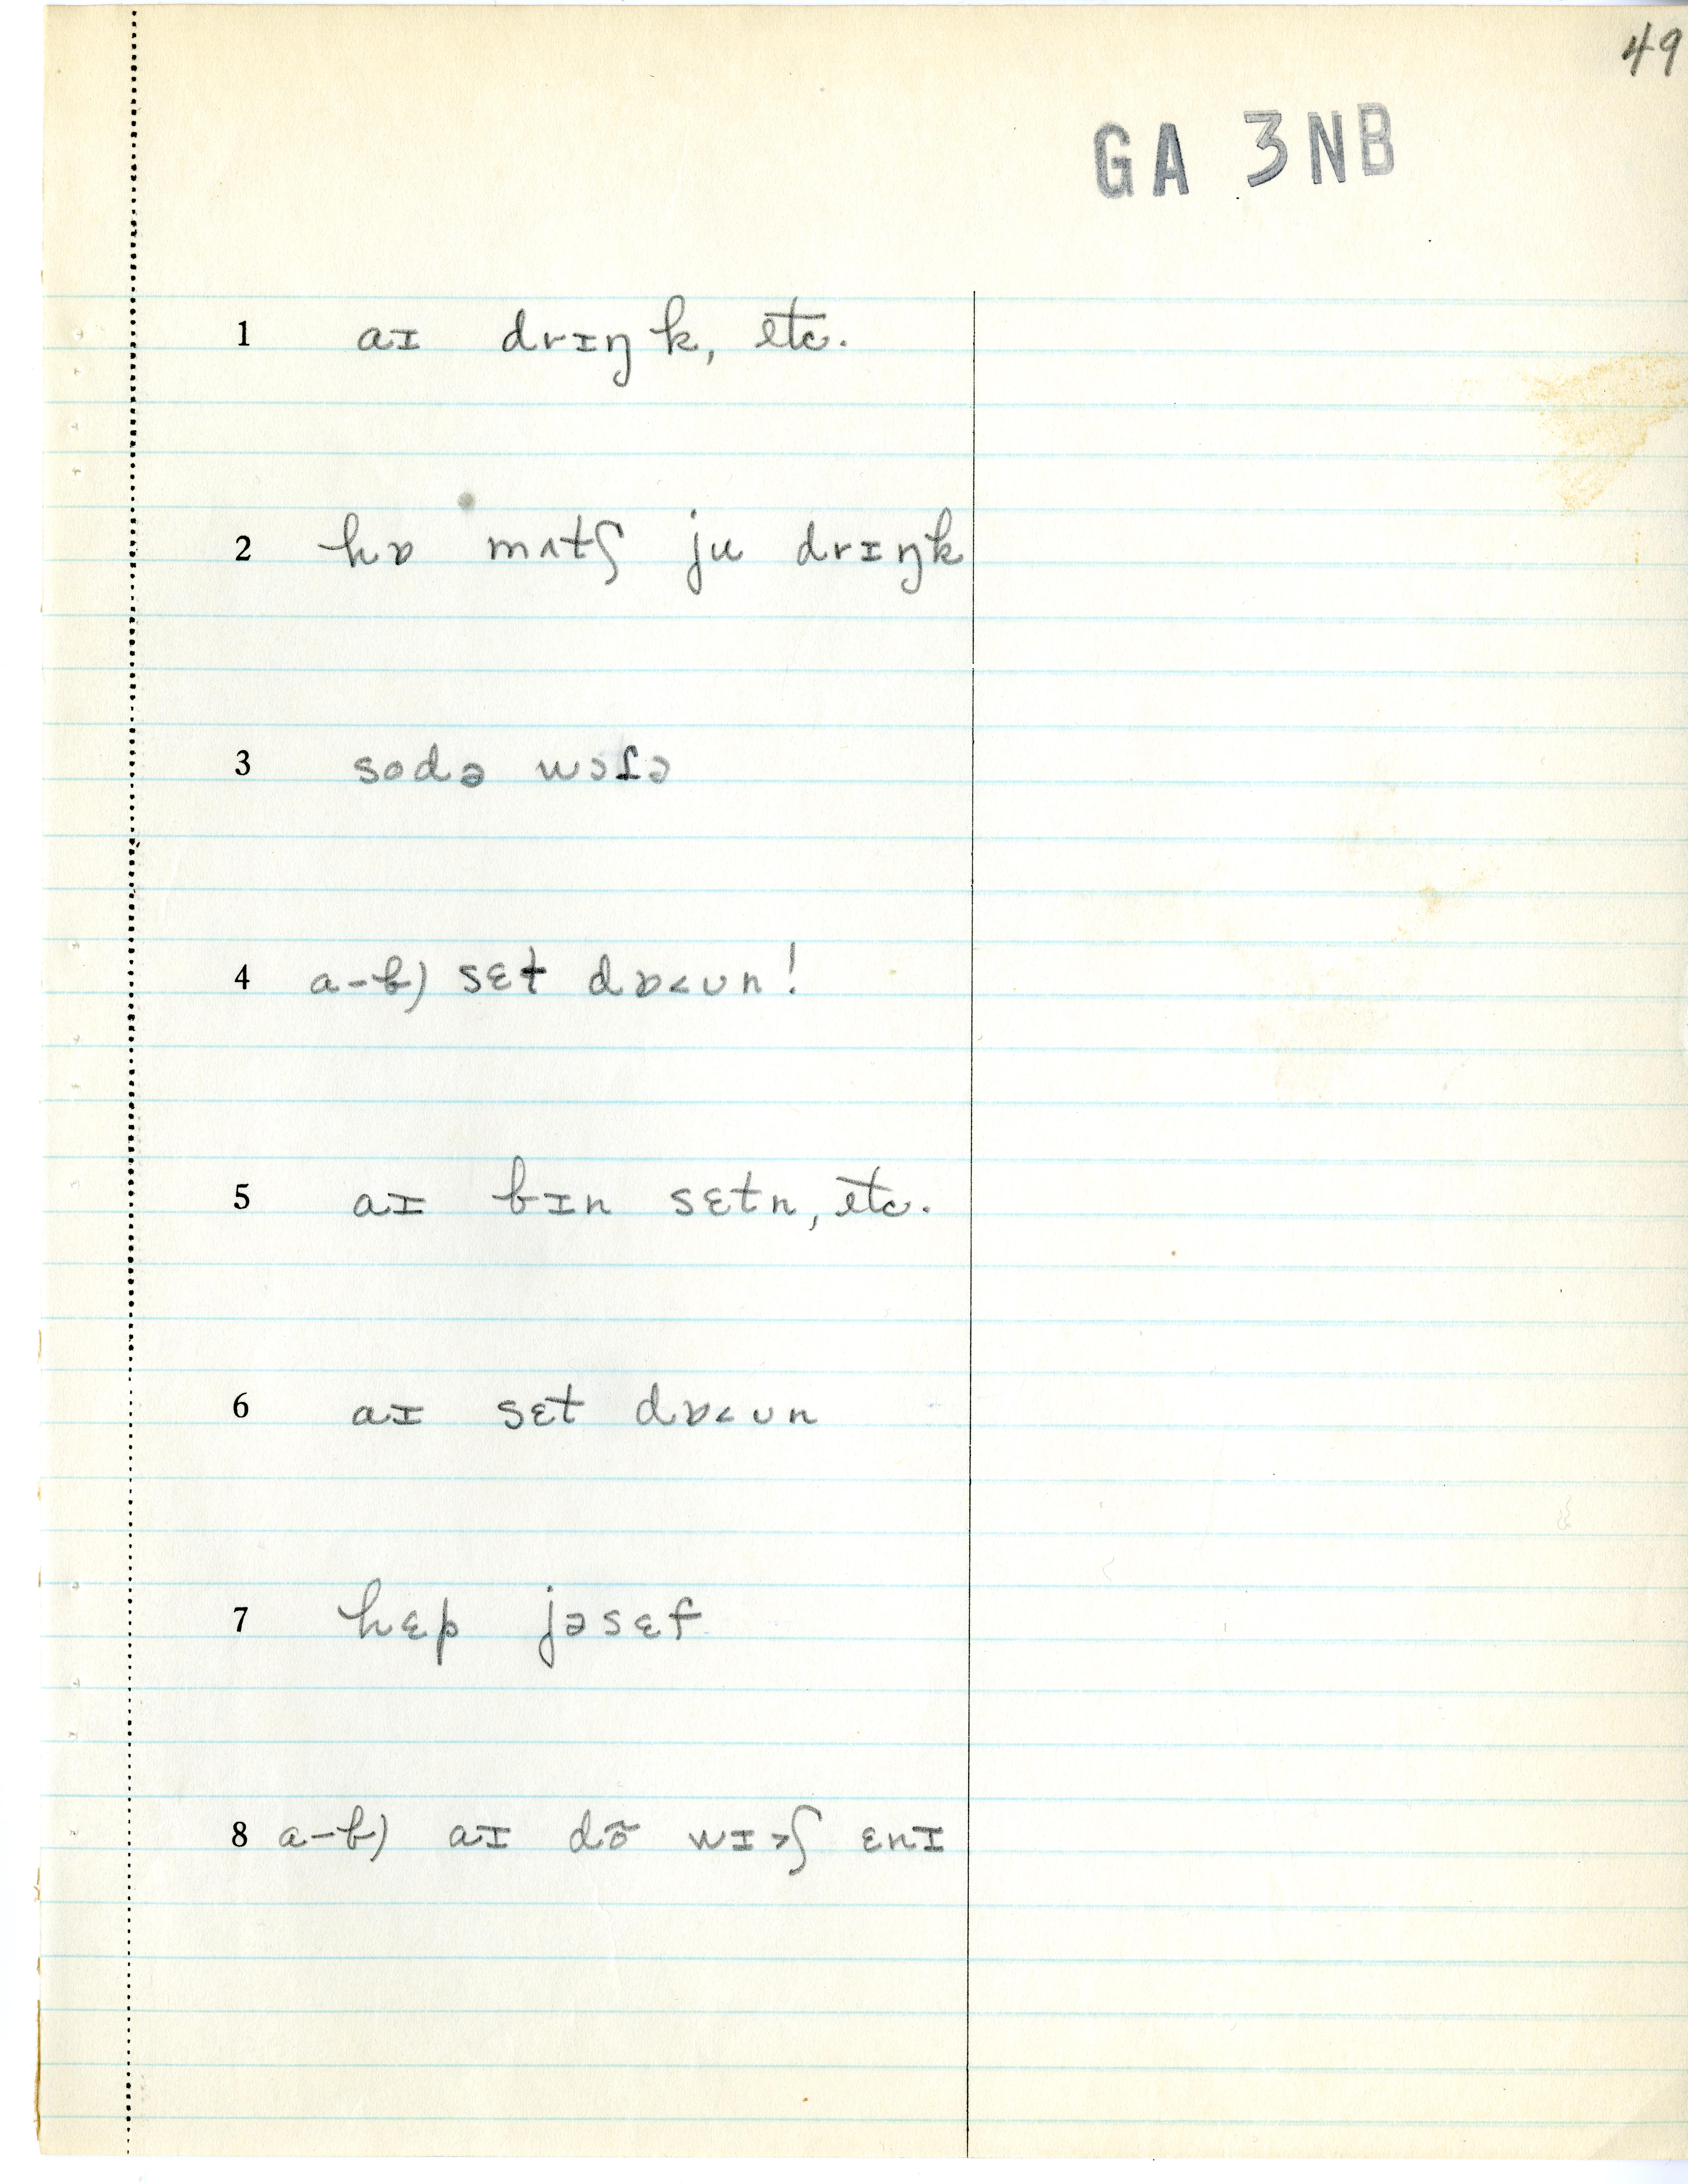 49
GA 3NB
1 aɪ drɪŋk, etc.
2 hɒ mʌtʃ ju drɪŋk
3 sodə wɔɾə
4 a-b) sɛt dɒ<ʊn!
5 aɪ bɪn sɛtn, etc.
6 aɪ sɛt dɒ<ʊn
7 hɛp jəsɛf
8 a-b) aɪ dõ wɪ>ʃ ɛnɪ